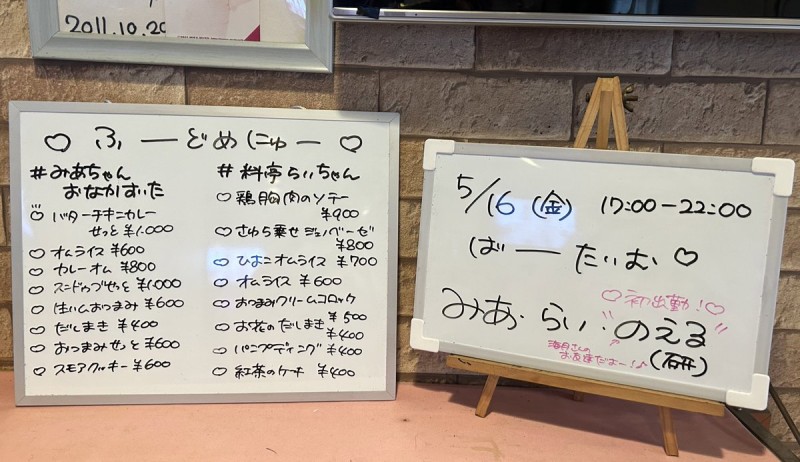 2011.10.20
♡ ふーどめにゅー ♡
#みあちゃん
おなかすいた
♡ バターチキンカレー
せっと ¥1.000
♡ オムライス ¥600
♡ カレーオム ¥800
♡ ¥1.000
♡ 生ハムおつまみ ¥600
♡ だしまき ¥400
♡ おつまみせっと ¥600
♡ スモアクッキー ¥600
# 料亭らいちゃん
♡ 鶏胸肉のソテー
¥900
♡ ジェノベーゼ
¥800
♡ ひよこオムライス ¥700
♡ オムライス ¥600
♡ おつまみクリームコロッケ
¥500
♡ お花のだしまき
¥400
♡ パンプディング ¥400
♡ 紅茶のケーキ ¥400
5/16 (金) 17:00-22:00
ばーたいむ ♡
♡初出勤!♡
みあ・らい・"のえる"
(研)
海月さんの
お友達だよー!♪